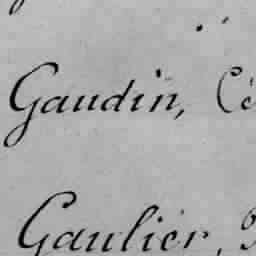 Gaudin, Cé
Gaulier,